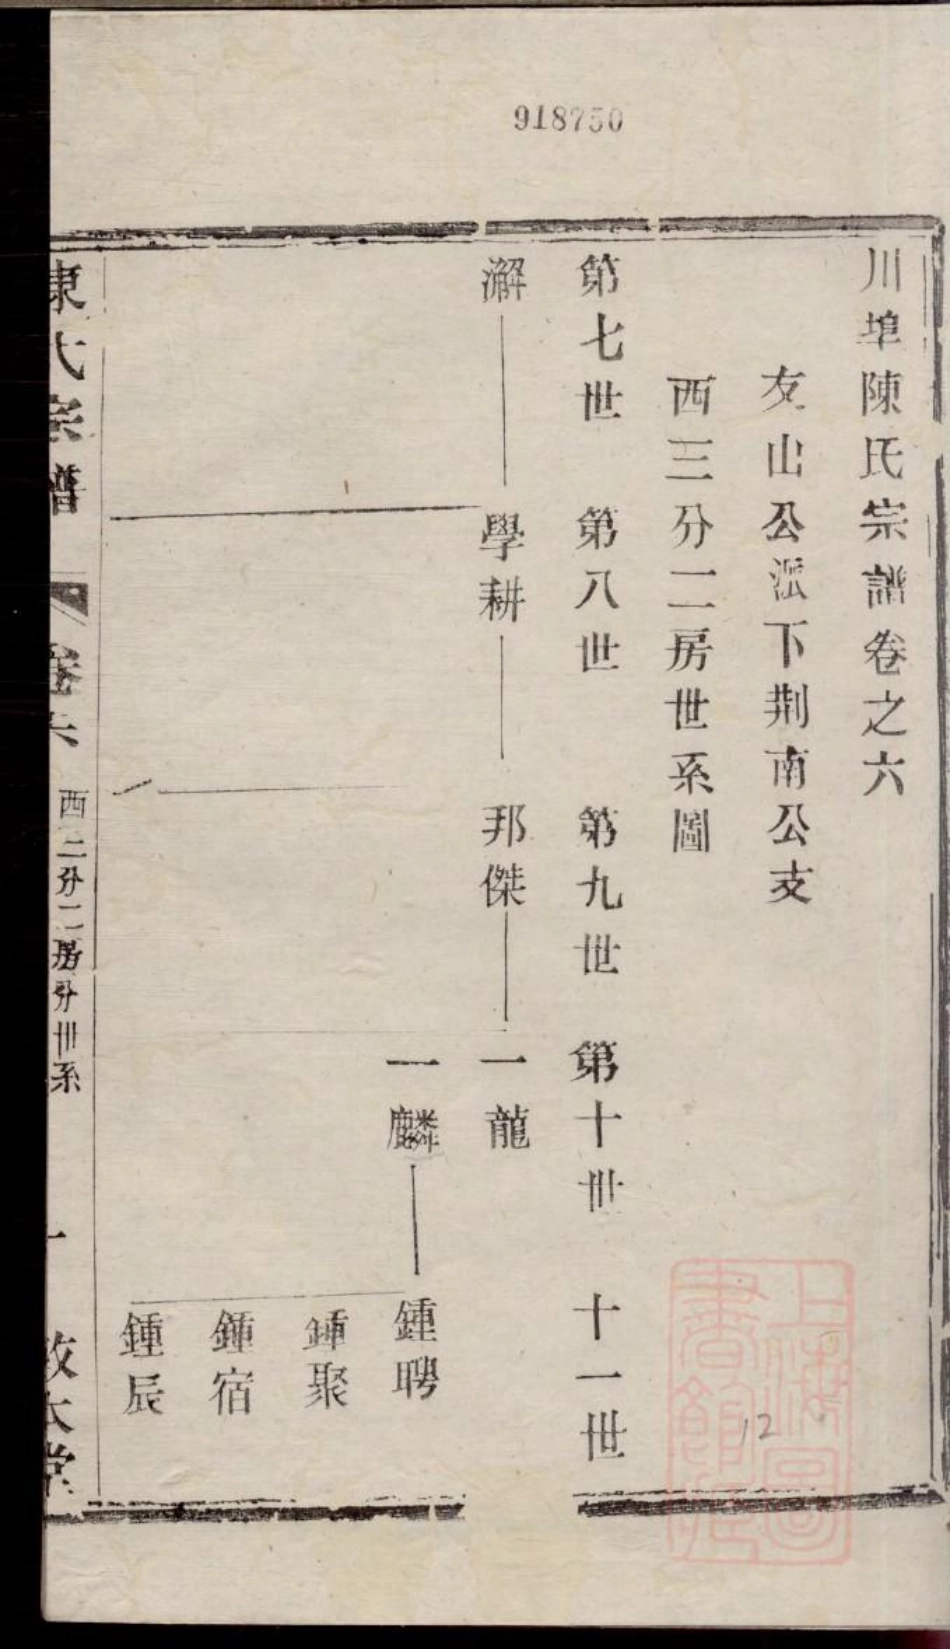 918750
川埠陳氏宗譜卷之六
友山公派下荆南公支
西三分二房世系圖
第七世 第八世 第九世 第十世 十一世
澥 學耕 邦傑 一龍
一麟 鍾聘
鍾聚
鍾宿
鍾辰
陳氏宗譜 卷六 西三分二房分世系 一 敦本堂
上海圖書館藏
12